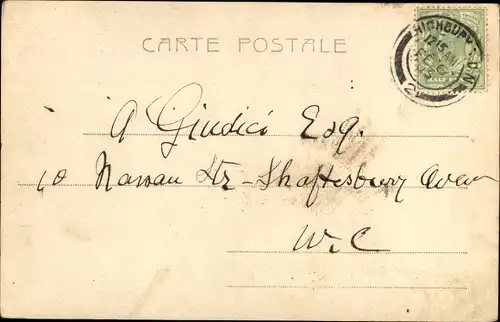 CARTE POSTALE
HIGHBURY
HALF
A Giudici Esq.
10 Nassau Str - Shaftesbury Aven
W.C